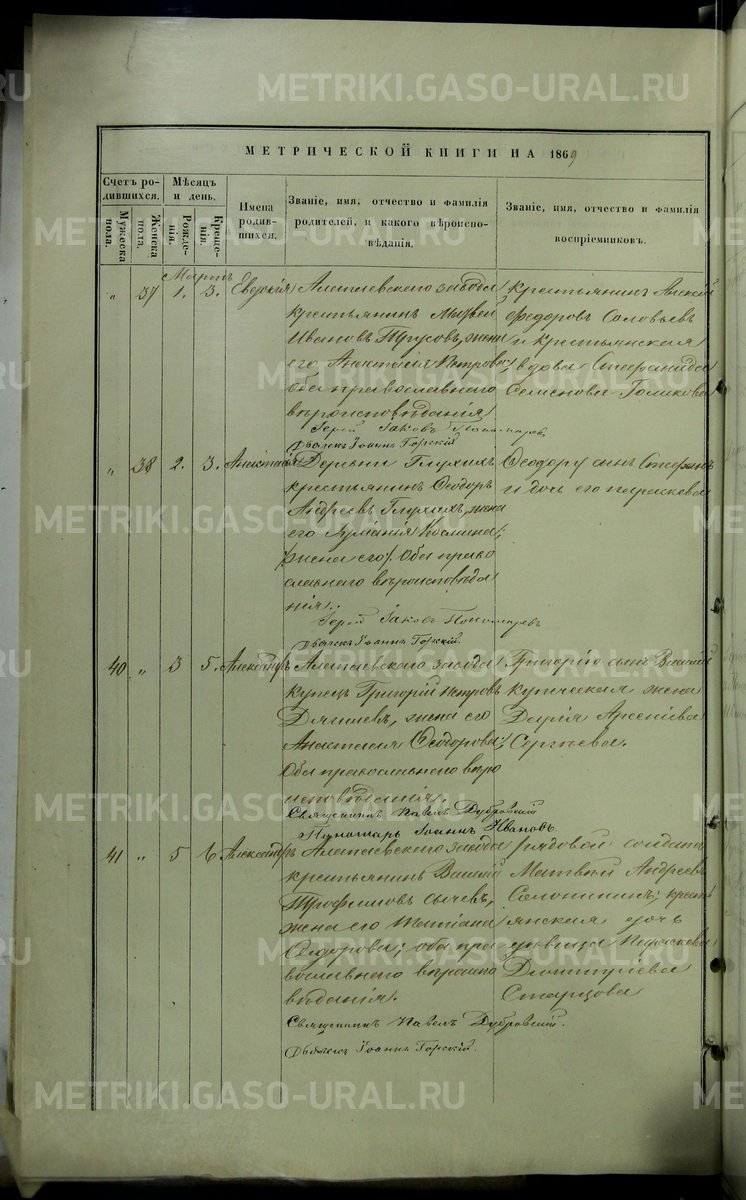 МЕТРИЧЕСКОЙ КНИГИ НА 1869
Счетъ ро-
дившихся.
Мужеска
пола.
Женска
пола.
Мѣсяцъ
и день.
Рожде-
нія.
Креще-
нія.
Имена
родив-
шихся.
Званіе, имя, отчество и фамилія
родителей, и какого вѣроиспо-
вѣданія.
Званіе, имя, отчество и фамилія
воспріемниковъ.
Мартъ
" 37 1. 3. Евдокія
Алапаевскаго завода
крестьянинъ
Ивановъ Трусовъ, жена
его Анастасія Петрова;
Оба православнаго
вѣроисповѣданія
Іерей Іаковъ Пономаревъ
Дьячекъ Іоаннъ Горскій
крестьянинъ Алексій
Федоровъ Соловьевъ
и крестьянская
вдова Стефанида
Семенова Голикова
" 38 2. 3. Анастасія
Деревни Глухихъ
крестьянинъ Ѳеодоръ
Андреевъ Глухихъ, жена
его Козмина;
(жена его). Оба право
славнаго вѣроисповѣда
нія.
Іерей Іаковъ Пономаревъ
Дьячекъ Іоаннъ Горскій.
Ѳеодору сынъ Стефанъ
и дочь его Параскева
40 " 3 5. Александръ
Алапаевскаго завода
купецъ Григорій Петровъ
Дягилевъ, жена его
Анастасія Ѳеодорова;
Оба православнаго вѣро
исповѣданія.
Священникъ Павелъ Дубровскій
Пономарь Іоаннъ Ивановъ.
Григорію сынъ Василій
купеческая жена
Дарія Арсеніева
Сергѣева.
41 " 5 6 Александръ
Алапаевскаго завода
крестьянинъ Василій
Трофимовъ Сычевъ,
жена его Татіана
Ѳедорова; оба пра
вославнаго вѣроиспо
вѣданія.
Священникъ Павелъ Дубровскій.
Дьячекъ Іоаннъ Горскій.
рядовой солдатъ
Матвѣй Андреевъ
Солонининъ; кресть
янская дочь
дѣвица Параскева
Димитріева
Старцова
METRIKI.GASO-URAL.RU